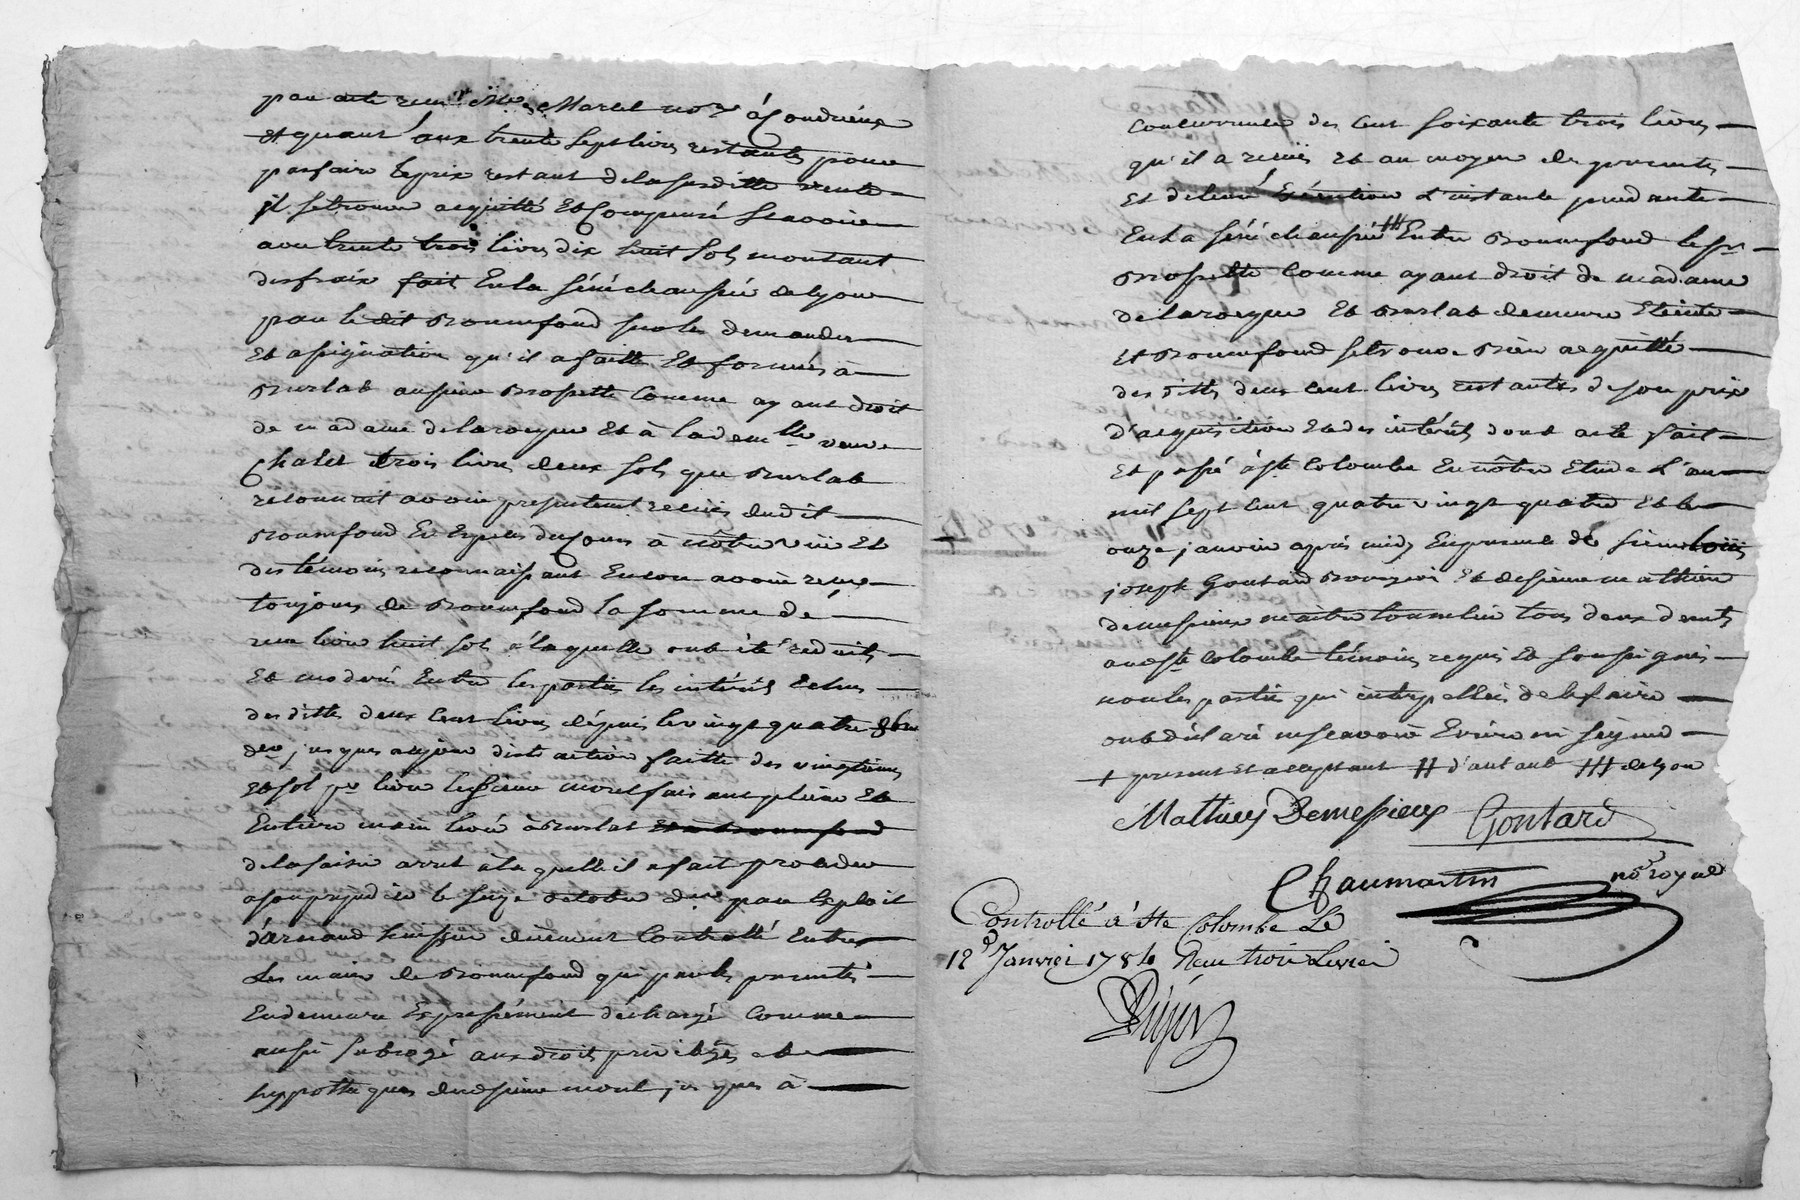 par acte reçu Me Marcel nore à Condrieux
et quant aux trente sept livres restants pour
parfaire le prix restant de la susditte vente
il se trouve acquitté et compensé scavoir
avec trente trois livres dix huit sols montant
des fraix fait en la sénéchaussée de lyon
par le dit Bonnefond sur les demandes
et assignation qu'il a faitte et formés à
Burlat au sieur Brossette comme ayant droit
de madame delarocque et à la demlle veuve
Chalet trois livres deux sols que Burlat
reconnait avoir présentement reçues dudit
Bonnefond en espèces du cours à nôtre vüe et
des témoins reconnaissant encore avoir reçu
toujours de Bonnefond la somme de
une livre huit sol à laquelle ont été réduits
et modérés entre les parties les intérêts echus
des dittes deux cent livres dépuis le vingt quatre 8bre
der jusques aujourd'hui distraction faitte des vingtiemes
et sol pr livre le sieur mont faisant pleine et
entière main levée à Burlat et à Bonnefond
de la saisie arret à laquelle il a fait proceder
a son prejudice le seize octobre der par exploit
d'Arnaud huissier düement controllé entre
les mains de Bonnefond qui par les présentes
en demeure expressément déchargé comme
aussi subrogé aux droits privilèges et
hyppotteques dudit sieur mont jusques à
concurrence des cent soixante trois livres
qu'il a reçues et au moyen des presentes
et de leur exécution l'instante pendante
en la sénéchaussée ### entre Bonnefond le sr
Brossette comme ayant droit de madame
delarocque et Burlat demeure eteinte
et Bonnefond se trouve bien acquitté
des dittes deux cent livres restantes de son prix
d'acquisition et des intérêts dont acte fait
et passé à ste colombe en nôtre etude l'an
mil sept cent quatre vingt quatre et le
onze janvier après midy en présence de sieur loüis
joseph Gontard Bourgeois et de sieur mathieu
demessieux maitre tournelier tous deux demts
audt ste colombe témoins requis et soussignés
non les parties qui interpellées de le faire
ont déclaré ne scavoir ecrire ni signer
+ present et acceptant ## d'autant ### de lyon
Mathieu Demessieux Gontard
Chaumartin nore royal
Controllé à Ste Colombe Le
12e Janvier 1784 Reçu trois Livres
Dijon